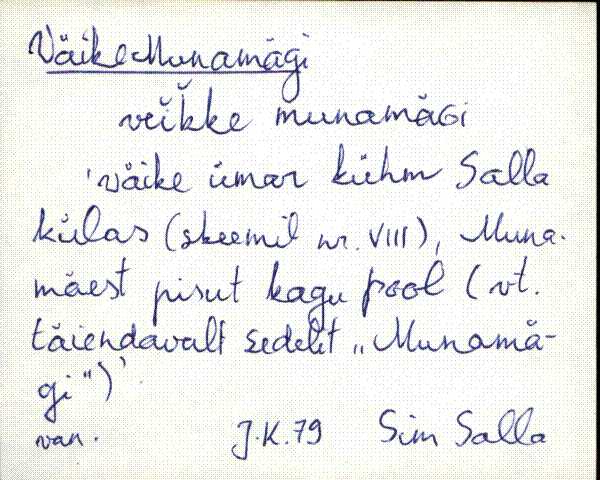 Väike Munamägi
veĭkke munamäGi
'väike ümar kühm Salla
külas (skeemil nr. VIII), Muna-
mäest pisut kagu pool (vt.
täiendavalt sedelit „Munamä-
gi")'.
van. J.K.79 Sim Salla